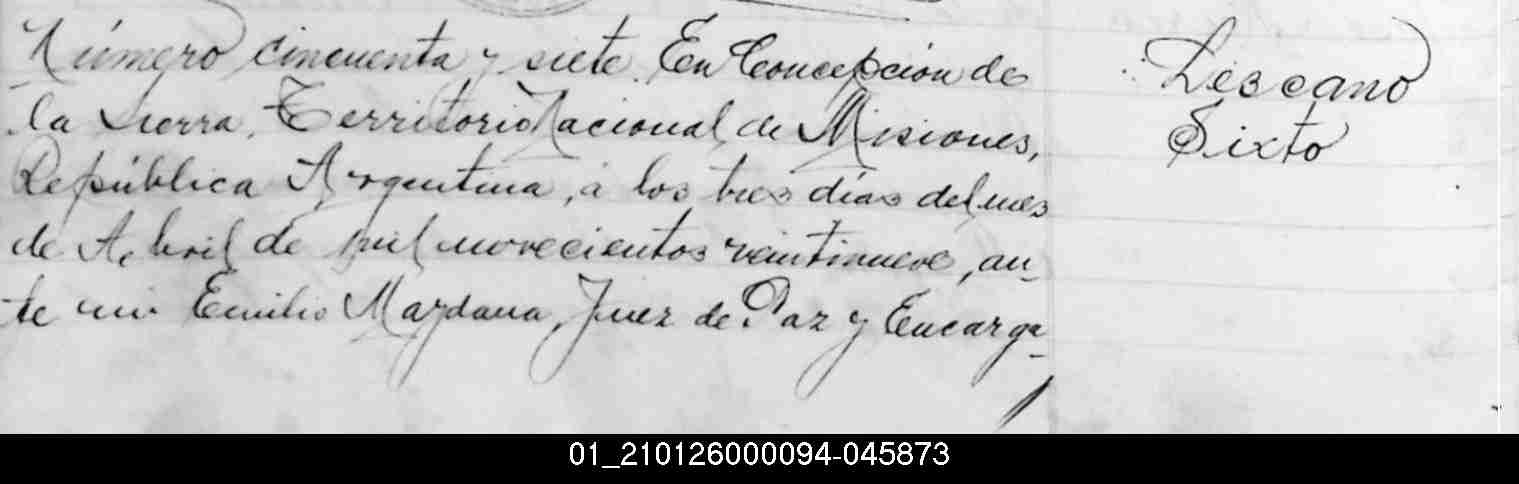 Número cincuenta y siete. En Concepción de
la Sierra, Territorio Nacional de Misiones,
República Argentina, á los tres días del mes
de Abril de mil novecientos veintinueve, an-
te mi Emilio Maydana, Juez de Paz y Encarga-
Lescano
Sixto
01_210126000094-045873